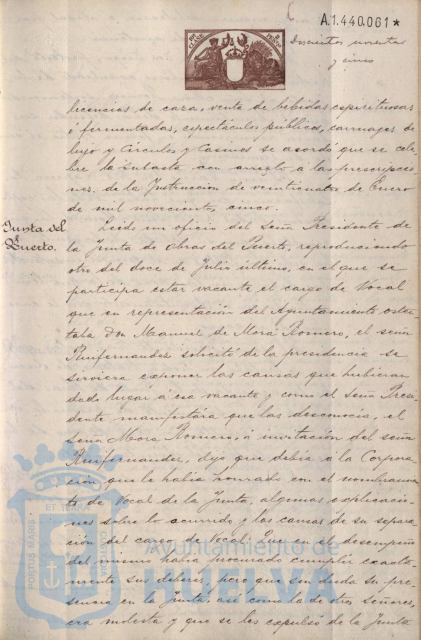 A.1.440.061*
Doscientos noventa
y cinco
licencias de caza, venta de bebidas espirituosas
ó fermentadas, espectáculos públicos, carruajes de
lujo y Círculos y Casinos se acordó que se cele-
bre la subasta con arreglo á las prescripcio-
nes de la Instrucción de veinticuatro de Enero
de mil novecientos cinco.
Junta del
Puerto.
Leido un oficio del Señor Presidente de
la Junta de Obras del Puerto, reproduciendo
otro del doce de Julio último, en el que se
participa estar vacante el cargo de Vocal
que en representación del Ayuntamiento osten-
taba Don Manuel de Mora Romero, el señor
Ruifernandez solicitó de la presidencia se
sirviera exponer las causas que hubieran
dado lugar á esa vacante y como el Señor Presi-
dente manifestára que las desconocia, el
Señor Mora Romero, á invitación del señor
Ruifernandez, dijo que debia á la Corpora-
ción, que le habia honrado con el nombramien-
to de Vocal de la Junta, algunas explicacio-
nes sobre lo ocurrido y las causas de su separa-
ción del cargo de Vocal: Que en el desempeño
del mismo habia procurado cumplir exacta-
mente sus deberes, pero que sin duda su pre-
sencia en la Junta, así como la de otros señores,
era molesta y que se les expulsó de la Junta
PORTUS MARIS
ET TERRAE
Ayuntamiento de
HUELVA